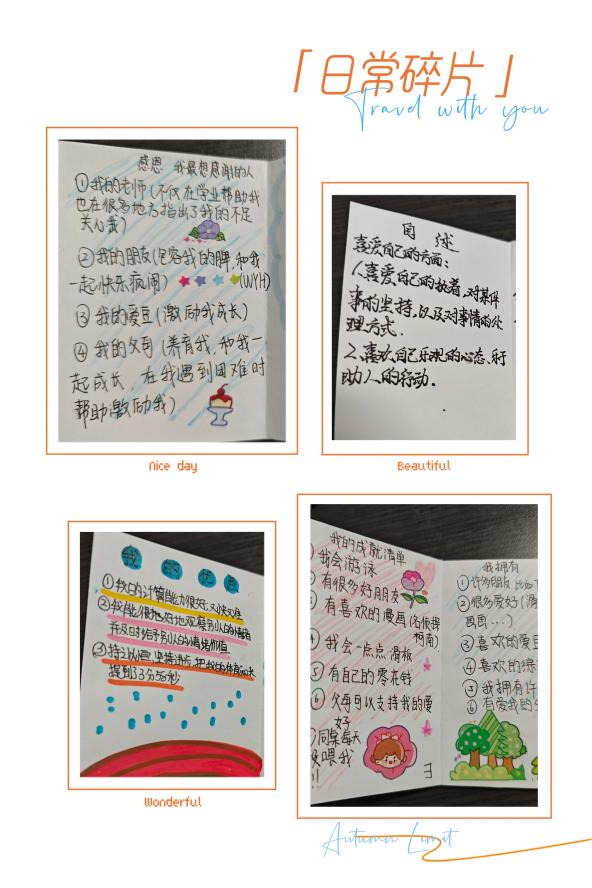 「日常碎片」
Travel with you
感恩 我最想感谢的人
①我的老师(不仅在学业帮助我
也在很多地方指出了我的不足
关心我)
②我的朋友(包容我的脾,和我
一起快乐疯闹) (WYH)
③我的爱豆(激励我成长)
④我的父母(养育我,和我一
起成长 在我遇到困难时
帮助激励我)
Nice day
自述
喜爱自己的方面:
1.喜爱自己的执着,对某件
事的坚持,以及对事情的处
理方式.
2.喜欢自己乐观的心态、
助人的行动.
Beautiful
我的优点
①我的计算能力很好,又快又准
②我能很好地观察别人的情绪
并及时给予别人的情绪价值
③持之以恒,坚持进步,把我的体育
提到3分56秒
Wonderful
我的成就清单
我会游泳
有很多好朋友
有喜欢的漫画(名侦探
柯南)
④我会一点点滑板
⑤有自己的零花钱
⑥父母可以支持我的爱
好
同桌每天
投喂我
!!
我拥有
①许多朋友
②很多爱好(
画画...)
③喜欢的爱豆
④喜欢的
⑤我拥有许
⑥有爱我的
Autumn Limit